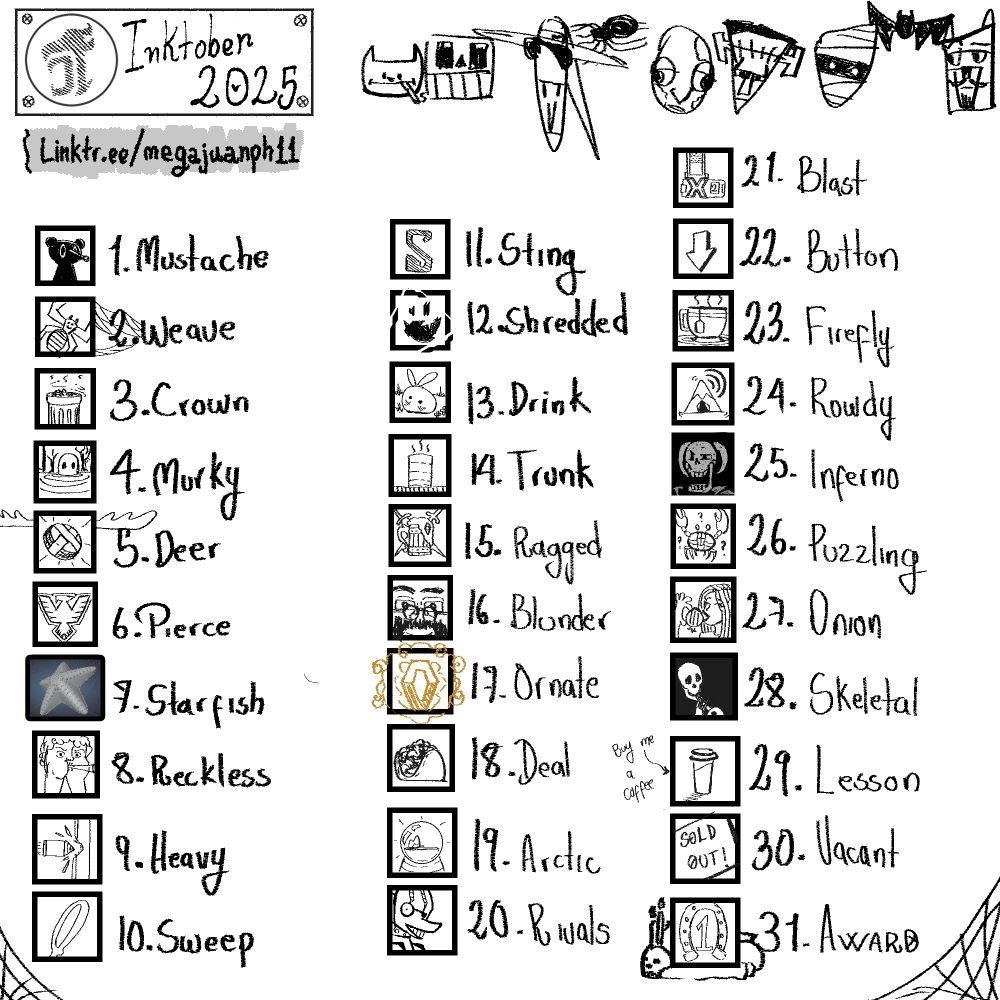 Inktober
2025
Linktr.ee/megajuanph11
1. Mustache
2. Weave
3. Crown
4. Murky
5. Deer
6. Pierce
7. Starfish
8. Reckless
9. Heavy
10. Sweep
11. Sting
12. Shredded
13. Drink
14. Trunk
15. Ragged
16. Blunder
17. Ornate
18. Deal
19. Arctic
20. Rivals
21. Blast
22. Button
23. Firefly
24. Rowdy
25. Inferno
26. Puzzling
27. Onion
28. Skeletal
Buy me
a
coffee
29. Lesson
SOLD
OUT!
30. Vacant
1
31. AWARD